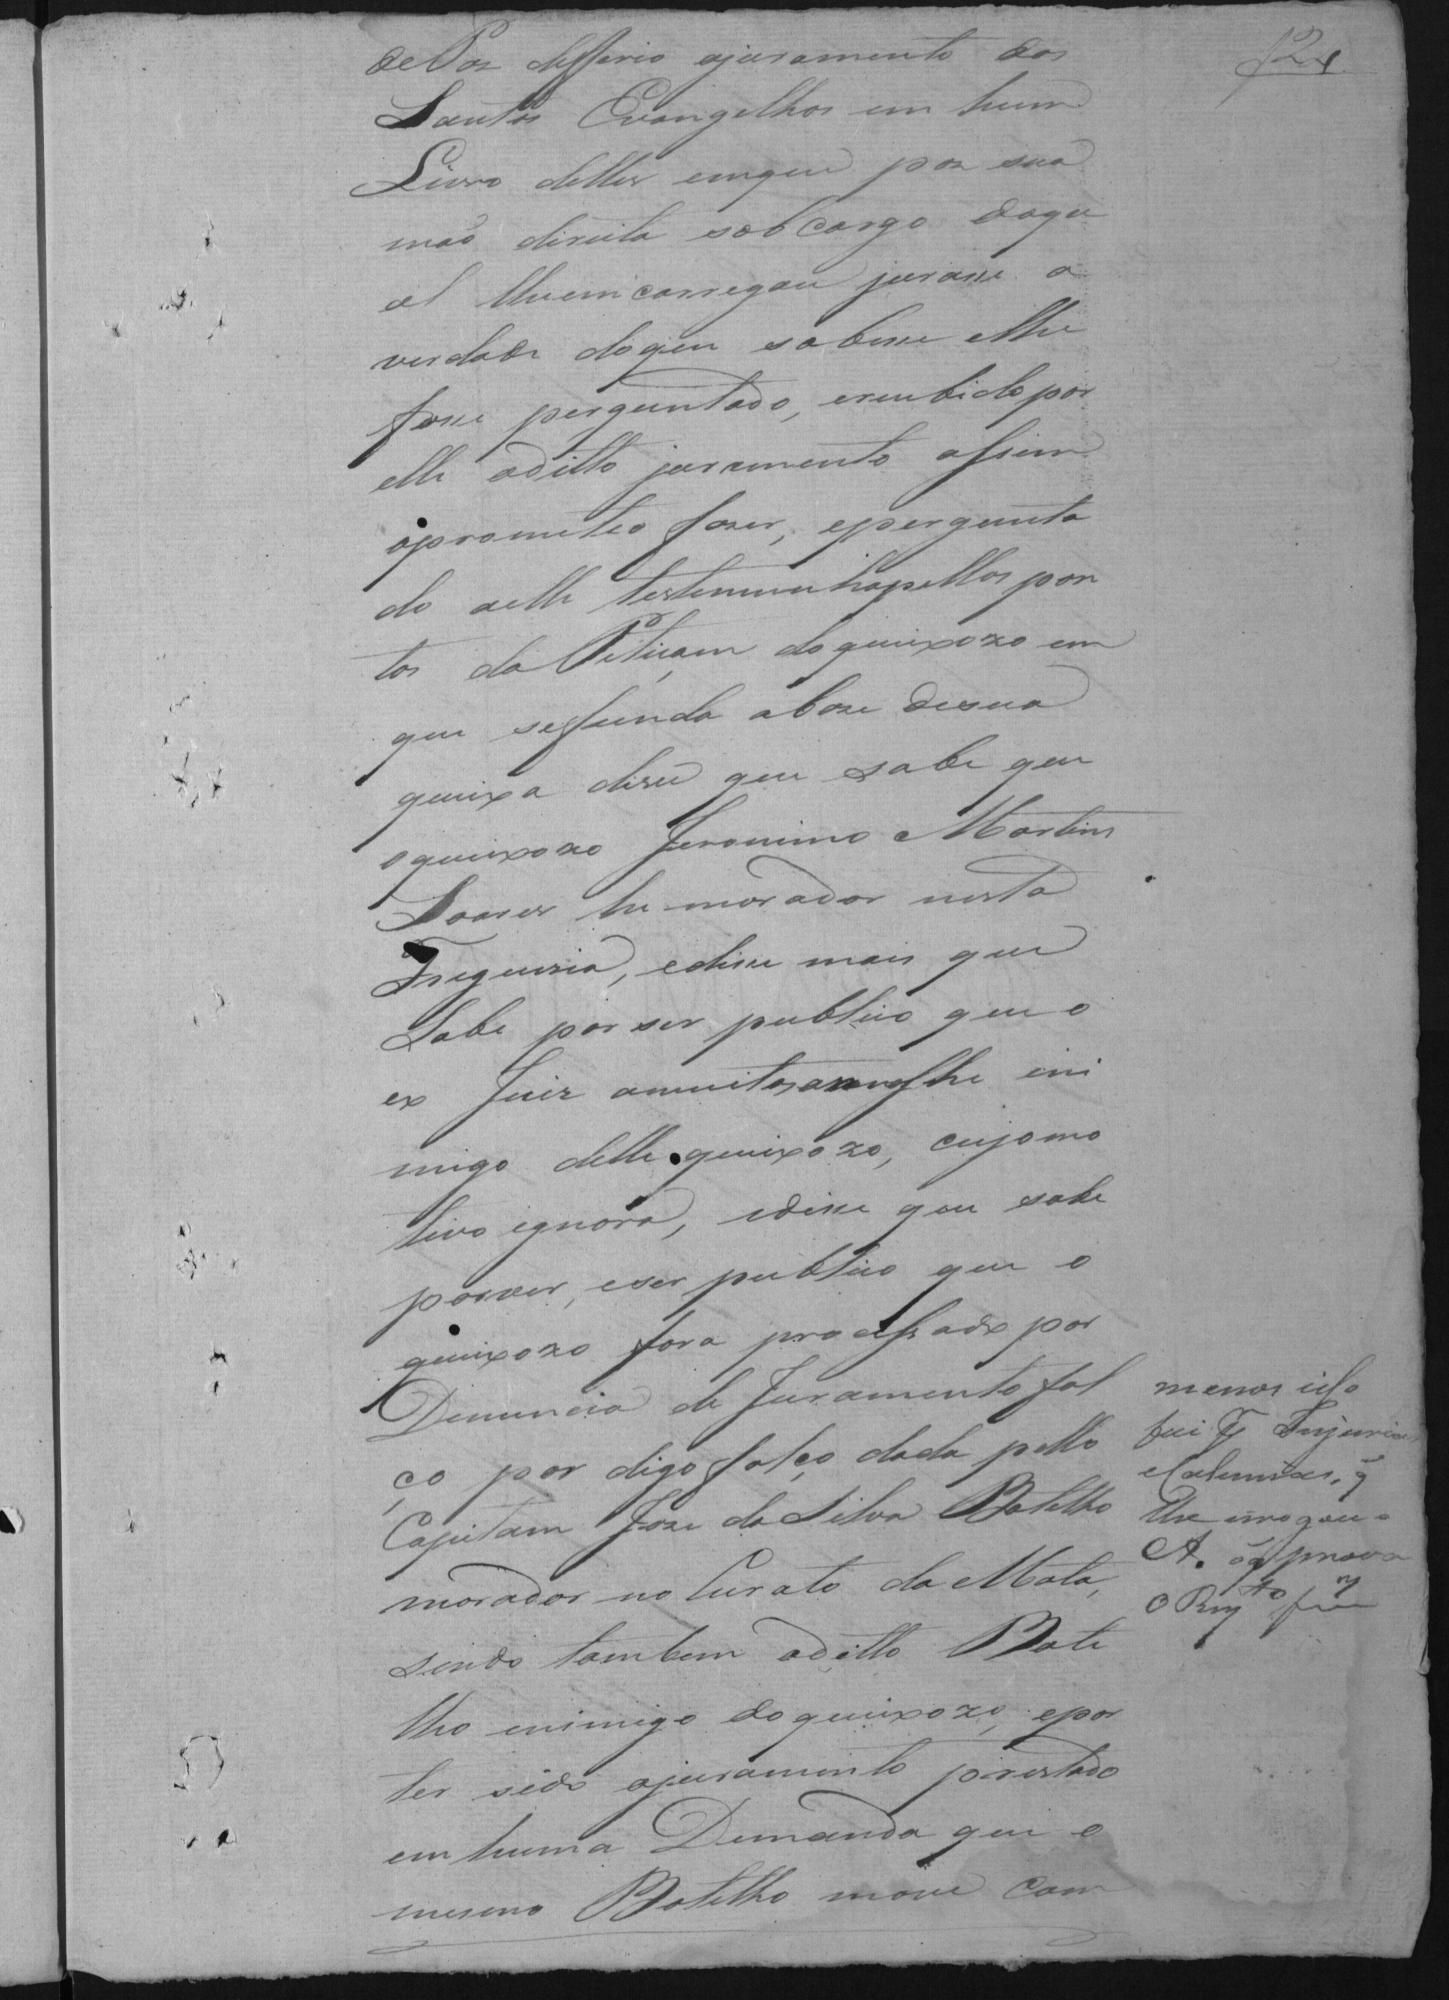 de Paz differio ojuramento dos
Santos Evangelhos em hum
Livro delles emque poz sua
mão direita sob cargo doqu
al lhe emcarregou jurasse a
verdade doque sobesse elhe
fosse perguntado, ereubido por
elle oditto juramento assim
oprometeo fazer, epergunta
do aelle testemunha pellos pon
tos da Petiçam do queixozo em
que sefunda abaze desua
queixa disse que sabe que
oqueixozo Jeronimo Martins
Soares he morador nesta
Freguezia, edisse mais que
Sabe por ser publico que o
ex Juiz amuitos annos he ini
migo delle queixozo, cujo mo
tivo ignora, edisse que sabe
por ver, eser publico que o
queixozo fora processado por
Denuncia de Juramento fal
ço por digo falço dada pello
Capitam Joze da Silva Botelho
morador no Curato da Mata,
sendo tambem oditto Bote
lho inimigo do queixozo, epor
ter sido ojuramento prestado
em huma Demanda que o
mesmo Botelho move com
menos isso
foi Injurias
eCalumnias, q̃
lhe irrogou o
A. prova
o Rq.to